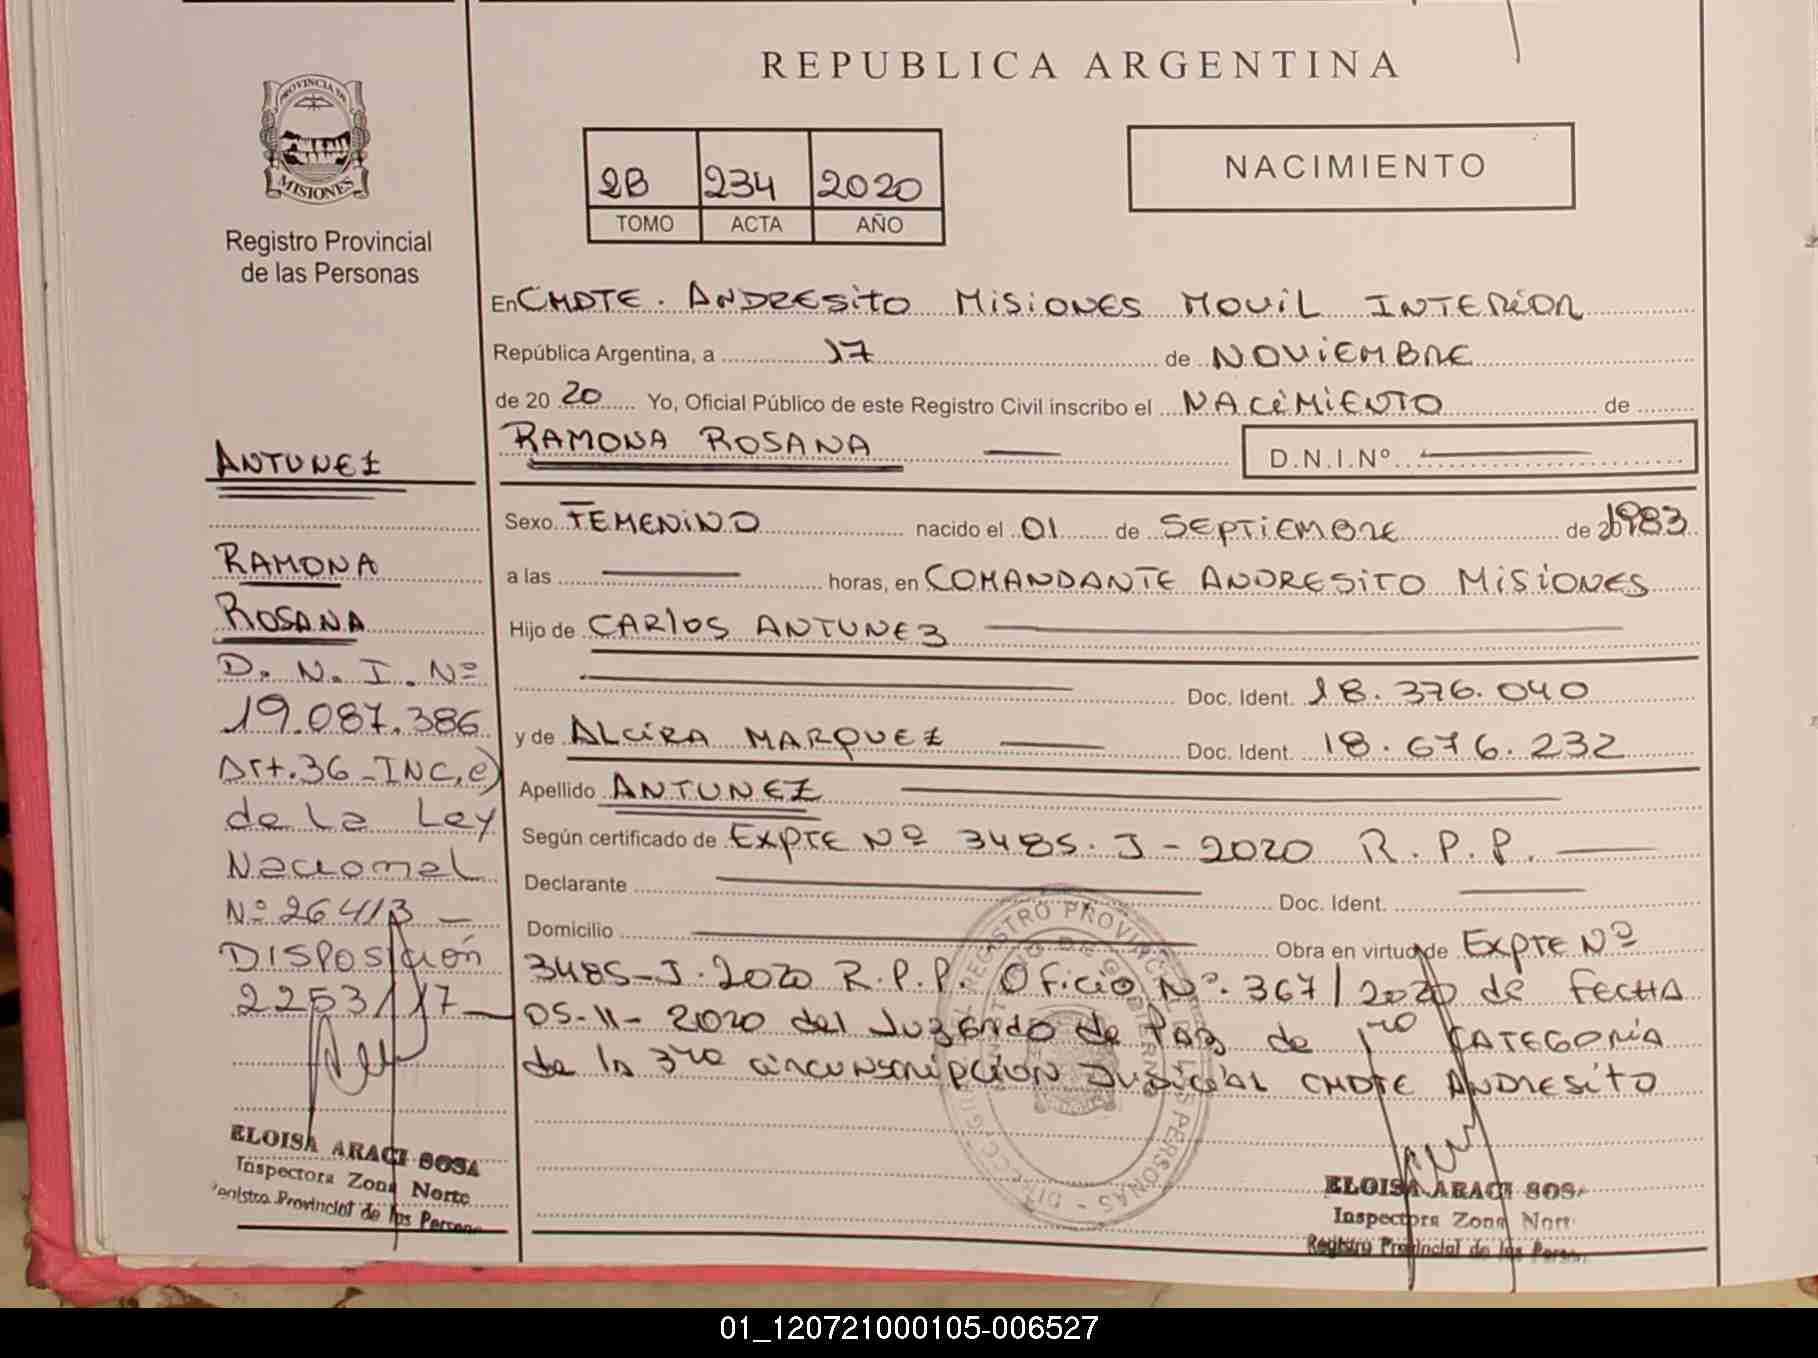 REPUBLICA ARGENTINA
PROVINCIA DE
MISIONES
Registro Provincial
de las Personas
2B 234 2020
TOMO ACTA AÑO
NACIMIENTO
En CMDTE. ANDRESITO MISIONES MOVIL INTERIOR
República Argentina, a 17 de NOVIEMBRE
de 20 20 Yo, Oficial Público de este Registro Civil inscribo el NACIMIENTO de
RAMONA ROSANA D.N.I.Nº
Sexo FEMENINO nacido el 01 de SEPTIEMBRE de 1983
a las horas, en COMANDANTE ANDRESITO MISIONES
Hijo de CARLOS ANTUNEZ
Doc. Ident. 18.376.040
y de ALCIRA MARQUEZ Doc. Ident. 18.676.232
Apellido ANTUNEZ
Según certificado de EXPTE Nº 3485.J-2020 R.P.P.
Declarante Doc. Ident.
Domicilio Obra en virtud de EXPTE Nº
3485-J-2020 R.P.P. Oficio Nº. 367/2020 de FECHA
05-11-2020 del Juzgado de Paz de 1ro CATEGORIA
de la 3ra circunscripcion Judicial CMDTE ANDRESITO
ELOISA ARACI SOS
Inspectora Zona Nort
Registro Provincial de las Person
ANTUNEZ
RAMONA
ROSANA
D.N.I. Nº
19.087.386
Art.36-INC,e)
de La Ley
Nacional
Nº 26413-
DISPOSICIÓN
2253/17
ELOISA ARACI SOSA
Inspectora Zona Norte
Registro Provincial de las Persona
01_120721000105-006527